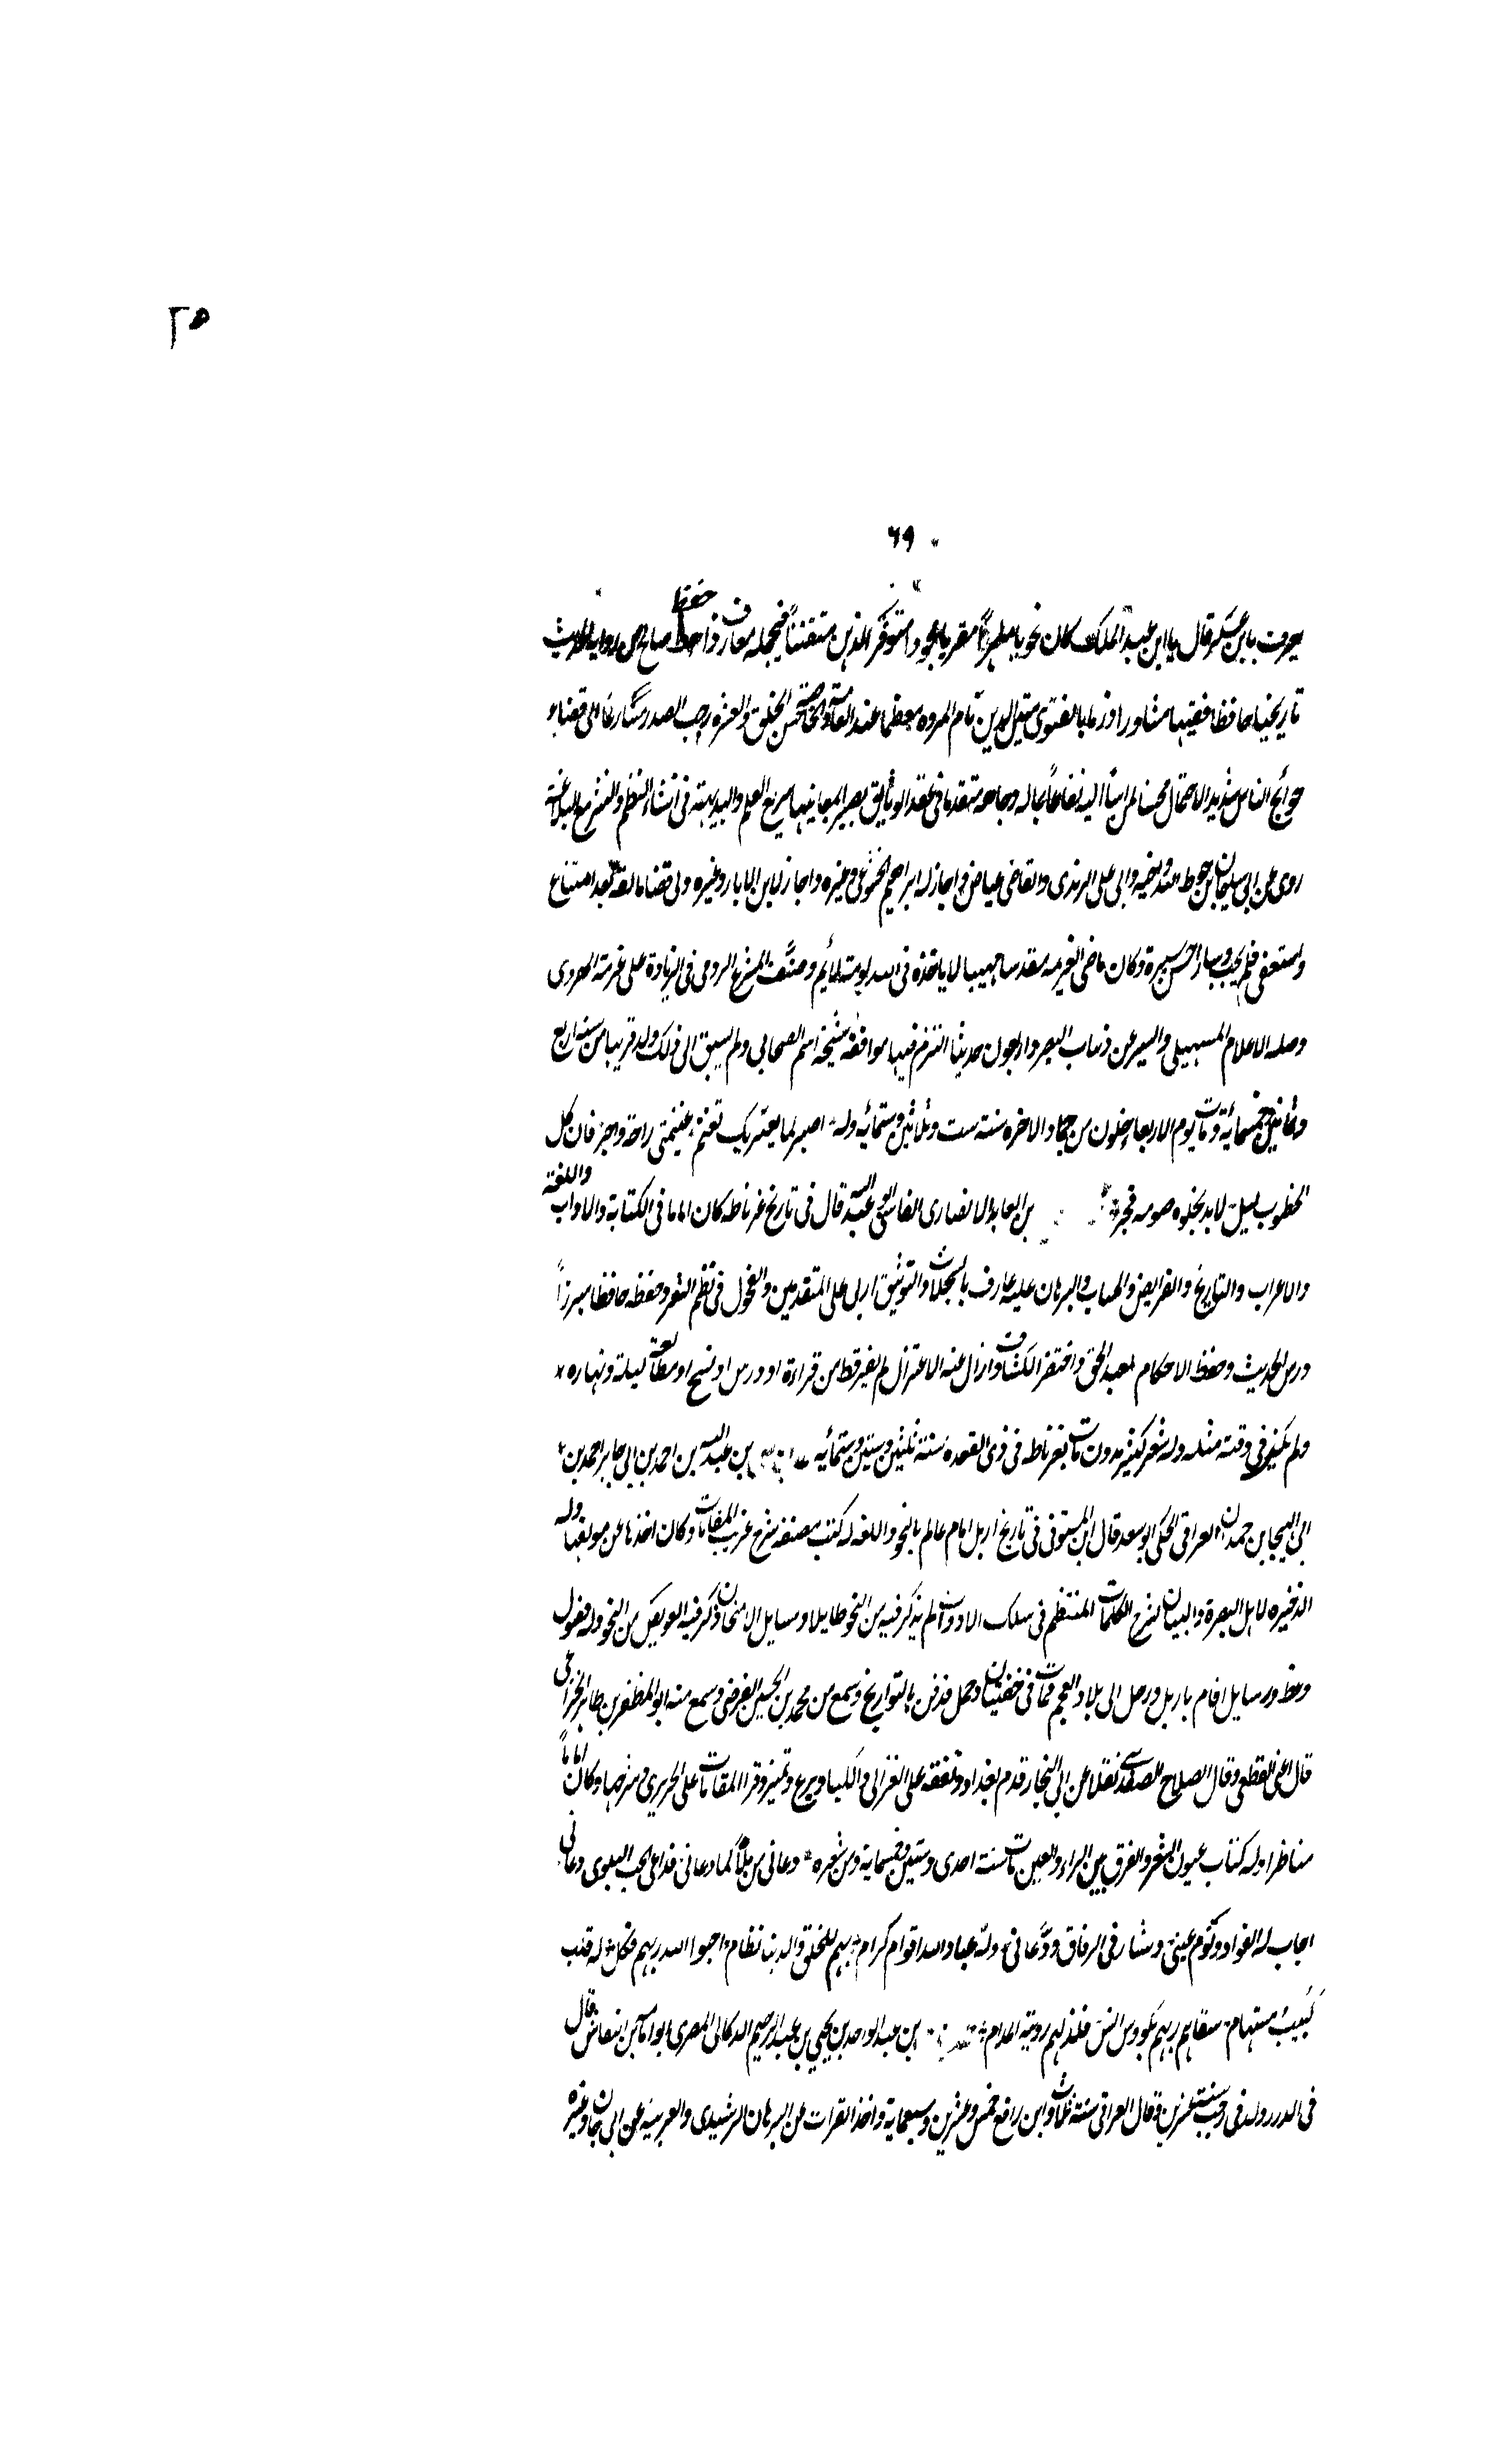 ٣٥
٦٩
يعرف بابن عسكر قال ابن عبد الملك كان نحويا ماهرا مقريا مجودا متوقد الذهن متفننا في جملة معارف ذا حظ صالح من رواية الحديث
تاريخيا حافظا فقيها مشاورا دربا بالفتوى متين الدين تام المروه معظما عند العامة والخاصة حسن الخلق والعشرة رحب الصدر مسارعا الى قضاء
حوائج الناس شديد الاحتمال محسنا لمن اساء اليه نفاعا بجاله وجاهه متقدما في عقد الوثايق بصيرا بمعانيها سريع القلم والبديهة في انشاء النظم والنثر مع البلاغة
روى عن ابي سليمان بن حوط الله وغيره وابي علي الرندي والقاضي عياض واجاز له ابراهيم الخشوعي وغيره واجاز لابن الابار وغيره ولي قضا مالقة بعد امتناع
واستعفى فلم يجب وسار احسن سيرة وكان ماضي العزيمه مقدما مهيبا لا ياخذه في الله لومة لائم وصنف المشرع الروي في الزيادة على غريبي الهروي
وصلة الاعلام للسهيلي والسير عن ذهاب البصر واربعون حديثا التزم فيها موافقة شيخه اسم الصحابي ولم يسبق الى ذلك ولد قريبا من سنة اربع
وثمانين وخمسمائة ومات يوم الاربعا خلون من جماد الاخره سنة ست وثلاثين وستمائه وله اصبر لما يعتريك تغنم غنيمتي راحة واجر فان كل
الخطوب ليل لا بد يجلوه ضوء فجر بن العابد الانصاري الفاسي ابو عبد الله قال في تاريخ غرناطه كان اماما في الكتابة والاداب واللغة
والاعراب والتاريخ والفرايض والحساب والبرهان عليه عارف بالسجلات والتوثيق اربى على المتقدمين والفحول في نظم الشعر وحفظه حافظا مبرزا
درس الحديث وحفظ الاحكام لعبد الحق واختصر الكشاف وازال عنه الاعتزال لم يفتر قط من قراءة او درس او نسخ او مطالعة ليله ونهاره
ولم يكن في وقته مثله وله شعر كثير مدون مات بغرناطه في ذي القعده سنة ثلثين وستين وستمائه بن عبد الله بن احمد بن ابي جابر احمد بن
ابي الهيجا بن حمدان العراقي الحلي ابو سعد قال ابن المستوفي في تاريخ اربل امام عالم بالنحو واللغه له كتب مصنفه شرح غريب المقامات وكان اخذها عن مولفها وله
الذخيره لاهل البصرة والبيان لشرح الكلمات المنتظم في سلك الادوات لم يذكر فيه من النحو طايلا ومسايل الامتحان ذكر فيه العويص من النحو وله فصول
وعظ ورسايل اقام باربل ورحل الى بلاد العجم فمات في خفتيان وحمل فدفن بالبوازيج وسمع من محمد بن الحسين الفرضي وسمع منه ابو المظفر بن طاهر الخزاعي
قال اعني القفطي وقال الصلاح الصفدي نقلا عن ابن النجار قدم بغداد وتفقه على الغزالي والكيا وبرع وتميز وقرا المقامات على الحريري وشرحها وكان اماما
مناظرا وله كتاب عيون الشعر والفرق بين الراء والعين مات سنة احدى وستين وخمسماية ومن شعره دعاني من ملامكما دعاني فداعي الحب للبلوى دعاني
اجاب له الفواد ونوم عيني وسار في الرفاق وودعاني وله عباد الله اقوام كرام بهم للخلق والدنيا نظام احبوا الله ربهم فكل له قلب
كئيب مستهام سقاهم ربهم بكووس انس فلذ لهم رويته اعدام بن عبد الواحد بن يحيى بن عبد الرحيم الدكالي المصري ابو امامة بن النقاش قال
في الدرر ولد في رجب سنة عشرين وقال العراقي سنة ثلاث وابن رافع خمس وعشرين وسبعماية واخذ القرات عن البرهان الرشيدي والعربية عن ابي حيان وغيره